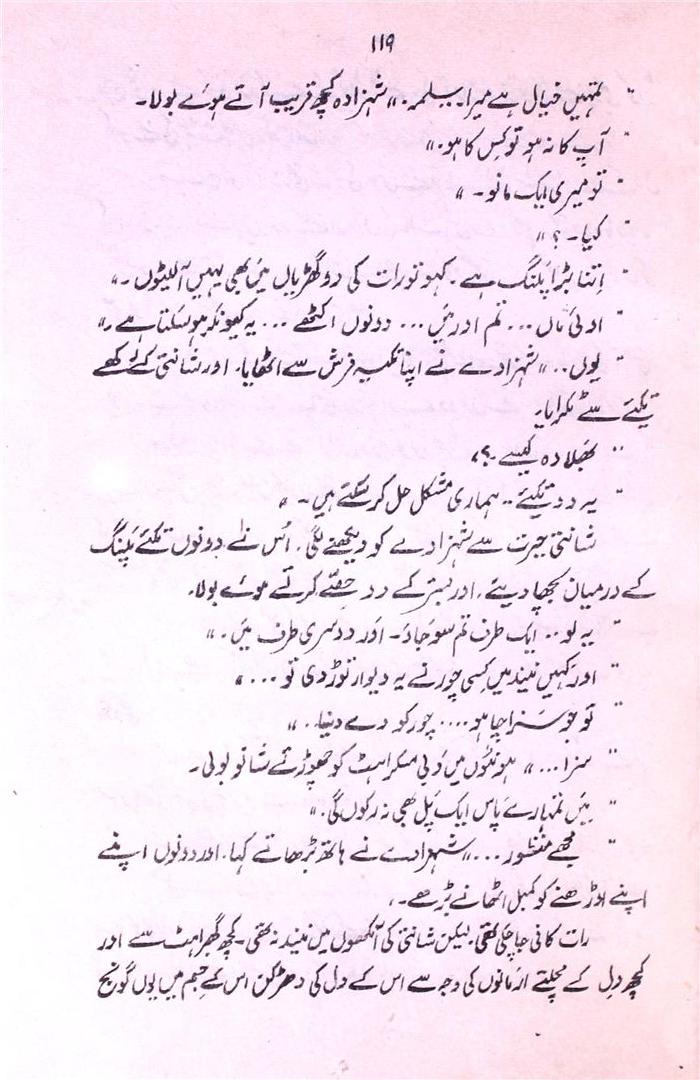 ۱۱۹
" تمہیں خیال ہے میرا۔ سلمہ۔" شہزادہ کچھ قریب آتے ہوئے بولا۔
" آپ کا نہ ہو تو کس کا ہو۔"
" تو میری ایک مانو۔ "
" کیا۔؟ "
" اِتنا بڑا پلنگ ہے۔ کہو تو رات کی دو گھڑیاں مَیں بھی یہیں آلیٹوں۔"
" اوئی ماں ... تم اور مَیں ... دونوں اکٹھے ... یہ کیونکر ہو سکتا ہے۔"
" یوں.." شہزادے نے اپنا تکیہ فرش سے اٹھایا۔ اور شانتی کے رکھے
تکئے سے ٹکرایا۔
" بھلا وہ کیسے۔؟"
" یہ دو تکیئے.. ہماری مشکل حل کر سکتے ہیں۔ "
شانتی حیرت سے شہزادے کو دیکھنے لگی۔ اُس نے دونوں تکئے پلنگ
کے درمیان بچھا دیئے۔ اور بستر کے دو حصّے کرتے ہوئے بولا۔
" یہ لو.. ایک طرف تم سو جاؤ۔ اور دوسری طرف مَیں۔"
" اور کہیں نیند میں کسی چور نے یہ دیوار توڑ دی تو ... "
" تو جو سزا چاہو .... چور کو دے دینا۔"
" سزا ..." ہونٹوں میں دبی مسکراہٹ کو چھوڑتے شانو بولی۔
" مَیں تمہارے پاس ایک پَل بھی نہ رکوں گی۔"
" مجھے منظور ..." شہزادے نے ہاتھ بڑھاتے کہا۔ اور دونوں اپنے
اپنے اوڑھنے کو کمبل اٹھانے بڑھے۔
رات کافی جا چکی تھی۔ لیکن شانتی کی آنکھوں میں نیند نہ تھی۔ کچھ گھبراہٹ سے اور
کچھ دِل کے مچلتے ارمانوں کی وجہ سے اس کے دل کی دھڑکن اس کے جسم میں یوں گونج